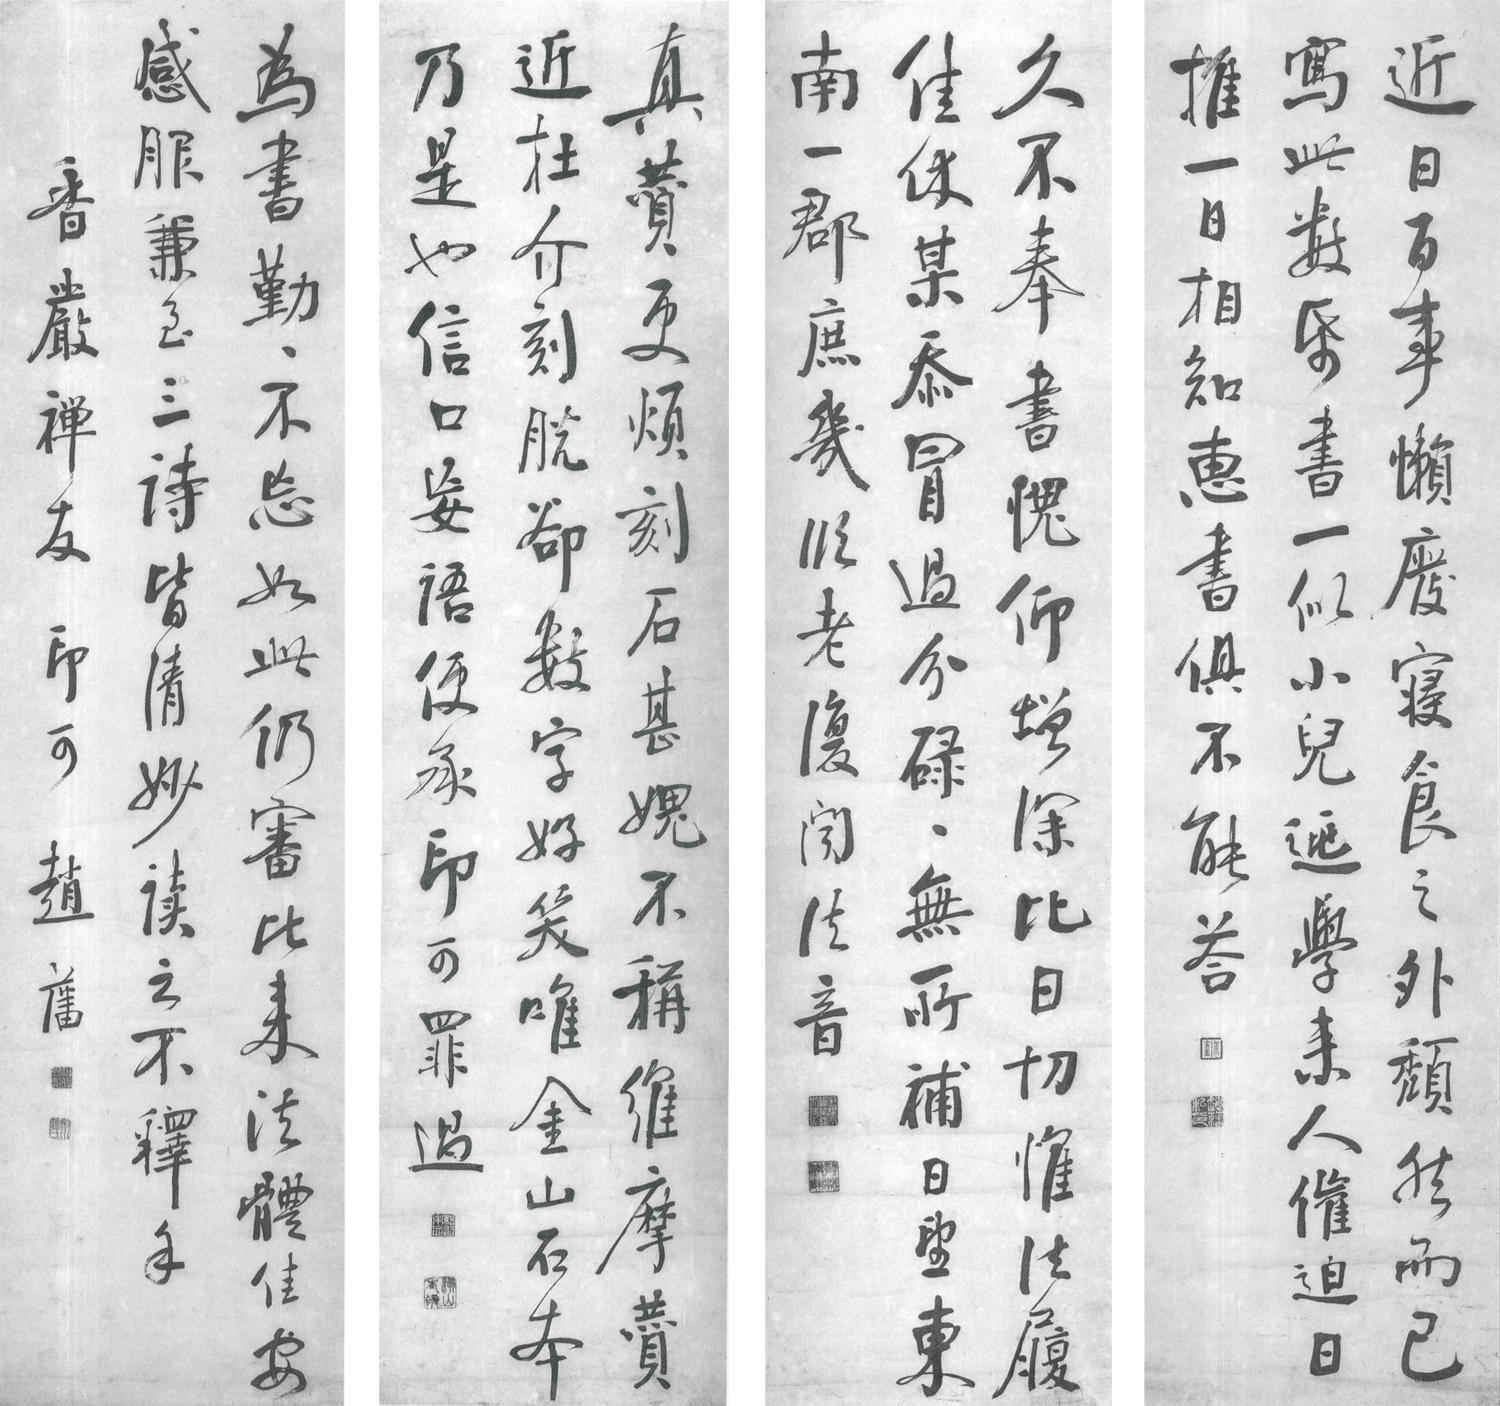 近日百事懶廢寢食之外頹然而已
寫此數紙書一似小兒逃學來人催迫日
推一日相知惠書俱不能荅
久不奉書愧仰增深比日切惟法履
佳休某忝冒過分碌〻無所補日望東
南一郡庶幾臨老復聞法音
真贊更煩刻石甚媿不稱維摩贊
近杜介刻脫卻數字好笑唯金山石本
乃是也信口妄語便承印可罪過
為書勤〻不忘如此仍審比來法體佳安
感服兼至三詩皆清妙讀之不釋手
香嚴禪友 印可 趙藩